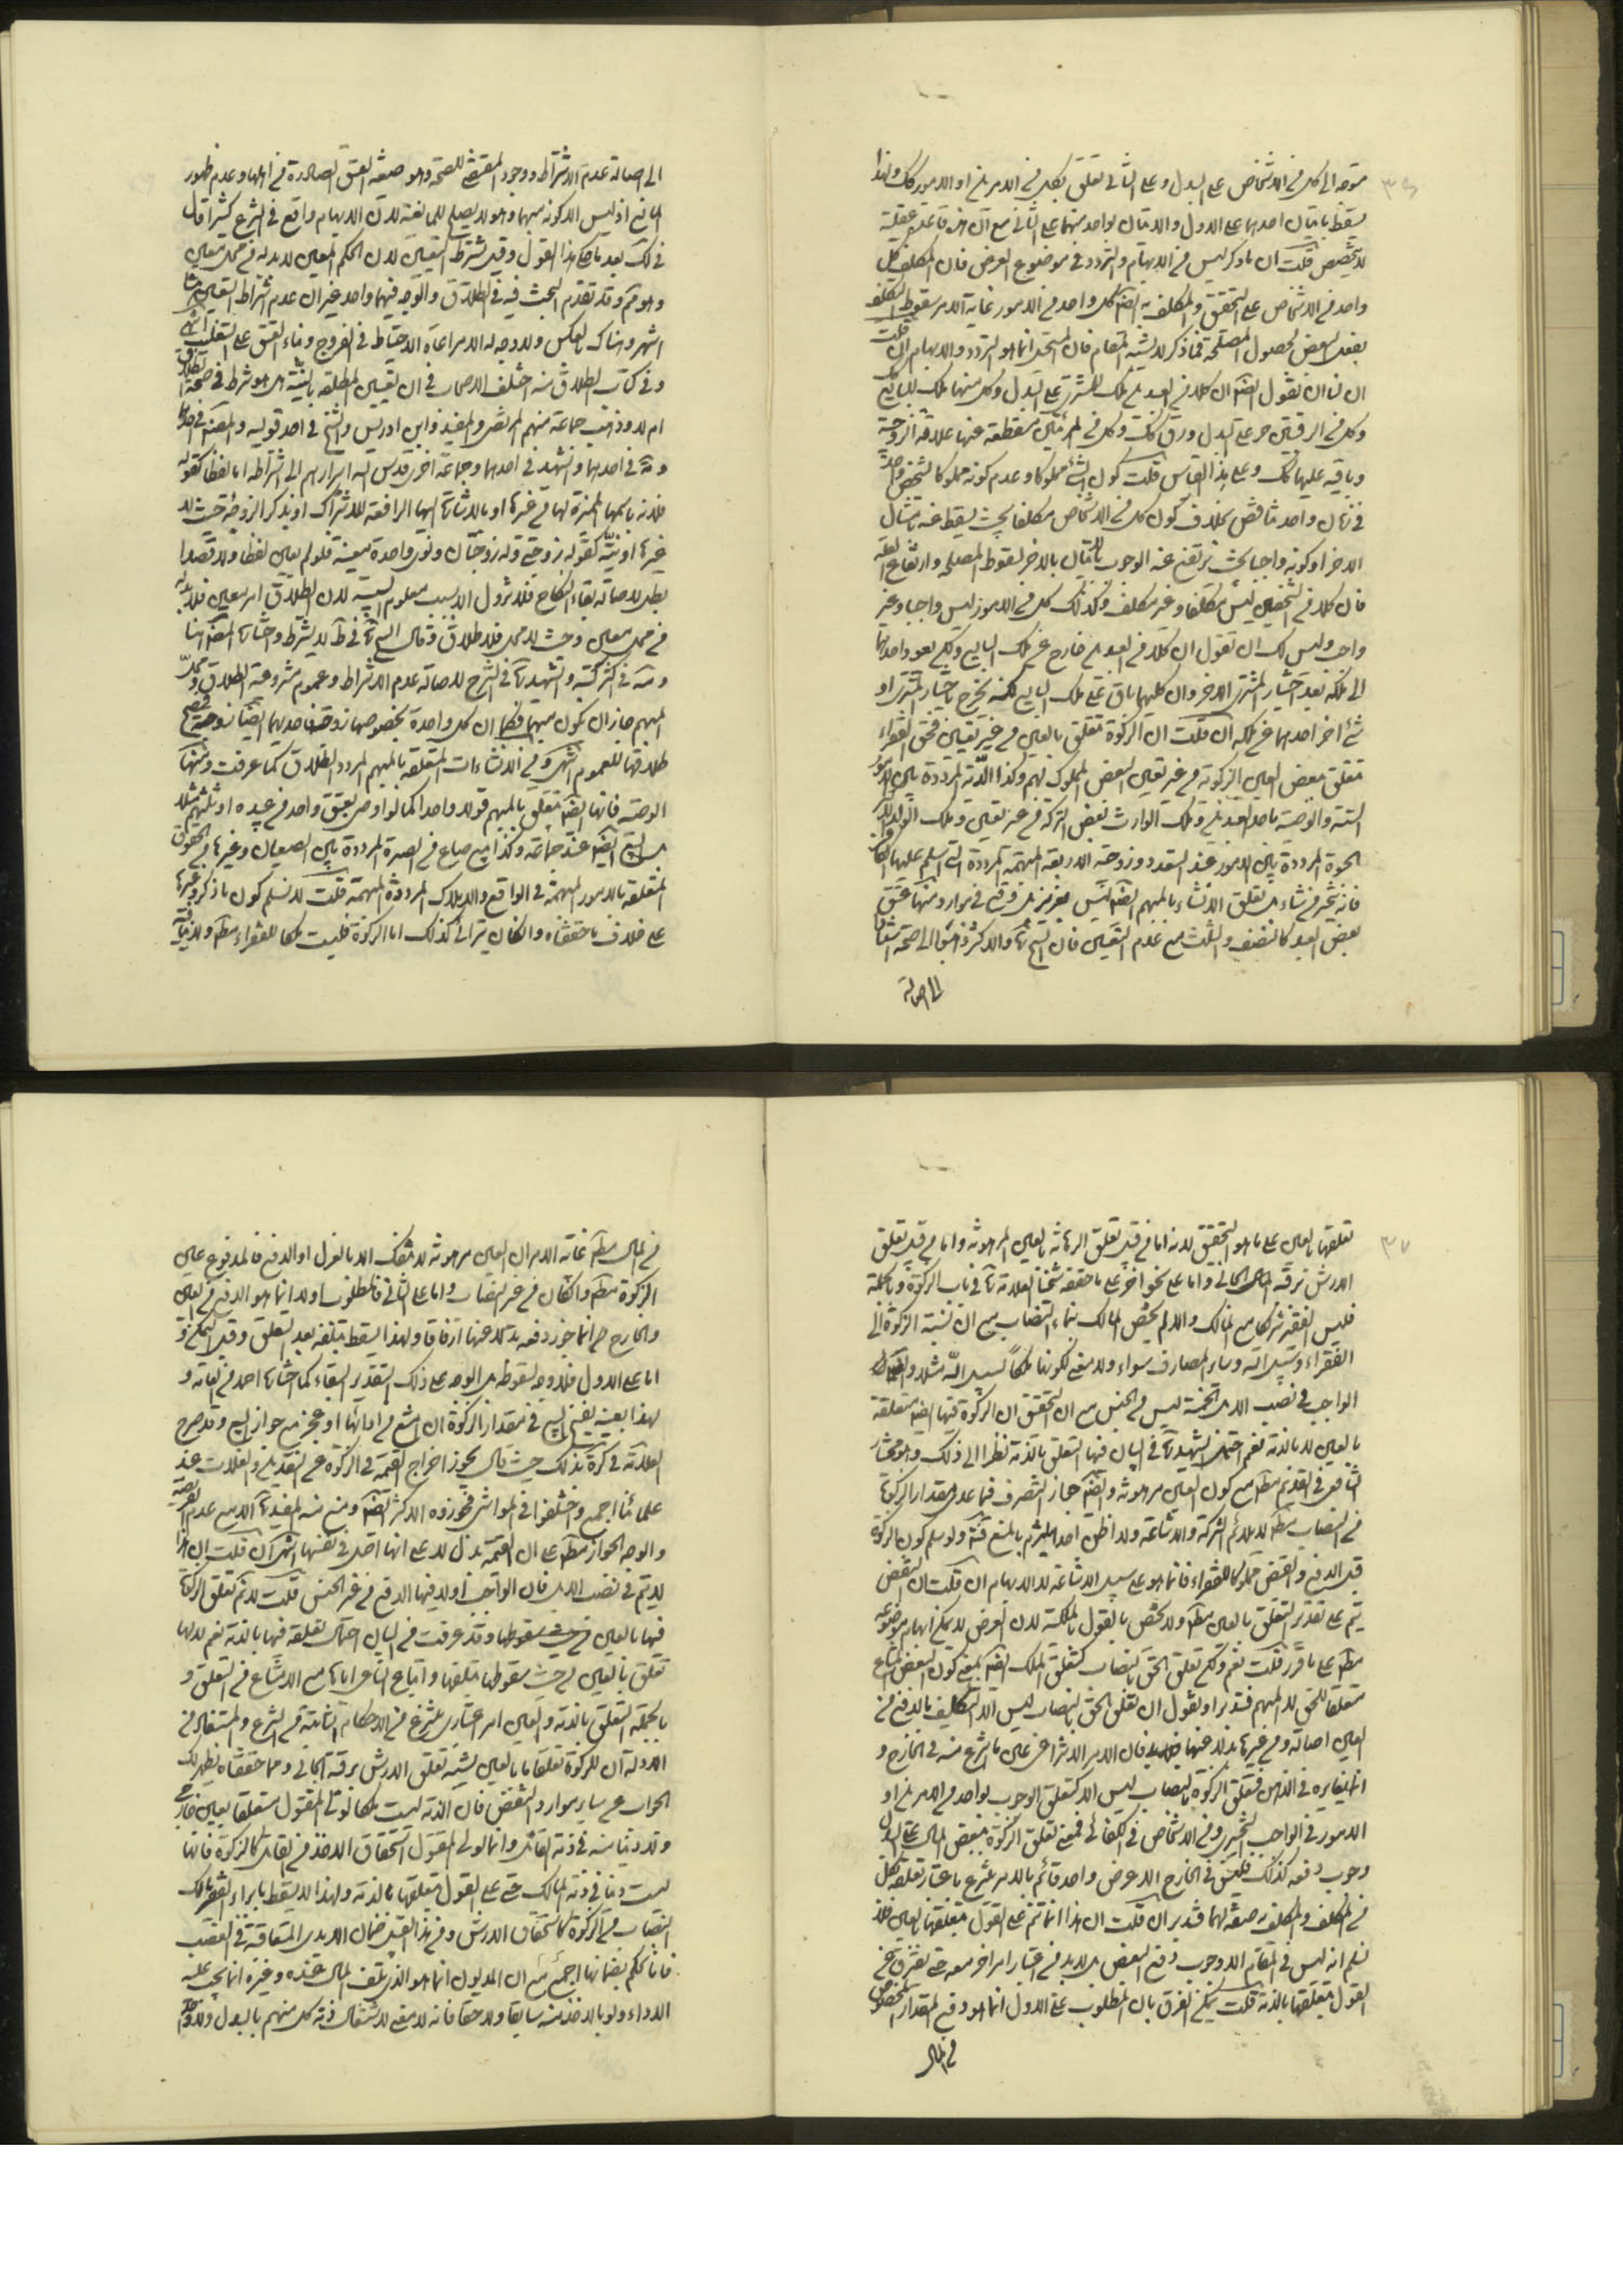 ٣٦
متوجه الى كل من الاشخاص على البدل وعلى الثانى تعلق بكل من الامرين او الامور كك ولهذا
يسقط بامتثال احدهما على الاول والامتثال بواحد منهما على الثانى مع ان هذه قاعدة عقلية
لا يتخصص قلت ان ما ذكر ليس من الابهام والتردد فى موضوع الفرض فان المكلف كل
واحد من الاشخاص على التحقيق والمكلف به ايضا كل واحد من الامور غاية الامر سقوط التكلف
بفعل البعض لحصول المصلحة فما ذكر لا يشبه المقام فان المستحيل انما هو التردد والابهام ان قلت
ان لنا ان نقول ايضا ان كلا من العبدين ملك للمشترى على البدل وكل منهما ملك للبايع
وكل من الرقيقين حر على البدل ورق كك وكل من المرئتين منقطعة عنها علاقة الزوجية
وباقية عليها كك وعلى هذا القياس قلت كون الشئ مملوكا وعدم كونه مملوكا لشخص واحد
فى زمان واحد تناقض بخلاف كون كل من الاشخاص مكلفا بحيث يسقط عنه بامتثال
الاخر او كونه واجبا بحيث يرتفع عنه الوجوب بالامتثال بالاخر لسقوط المصلحة وارتفاع العلة
فان كلا من الشخصين ليس مكلفا وغير مكلف وكذلك كل من الامور ليس واجبا وغير
واجب وليس لك ان تقول ان كلا من العبدين خارج عن ملك البايع ولكن يعود احدهما
الى ملكه بعد اختيار المشترى الاخر وان كليهما باق على ملك البايع لكنه يخرج باختيار المشترى او
شئ اخر احدهما عن ملكه ان قلت ان الزكوة تتعلق بالعين من غير تعيين فحق الفقراء
متعلق ببعض العين الزكوية من غير تعيين البعض المملوك لهم وكذا الدية المرددة بين الامور
الستة والوصية باحد العبدين وملك الوارث بعض التركة من غير تعيين وملك الولد الاكبر
الحبوة المرددة بين الامور عند التعدد وزوجية الاربعة المبهمة المرددة التى اسلم عليها الكافر
فانه يتخير من شاء بل تعلق الانشاء بالمبهم ايضا ليس بعزيز بل وقع فى موارد منها عتق
بعض العبد كالنصف والثلث مع عدم التعيين فان الشيخ ره والاكثر ذهبوا الى صحته استنادا
الى اصالة
الى اصالة عدم الاشتراط ووجود المقتضى للصحة وهو صيغة العتق الصادرة من اهلها وعدم ظهور
المانع اذ ليس الا كونه مبهما وهو لا يصلح للمانعية لان الابهام واقع فى الشرع كثيرا قال
فى لك بعد ما حكى هذا القول وقيل يشترط التعيين لان الحكم المعين لا بد له من محل معين
وهو مم وقد تقدم البحث فيه فى الطلاق والوجه فيهما واحد غير ان عدم اشتراط التعيين هنا
اشهر وهناك بالعكس ولا وجه له الا مراعاة الاحتياط فى الفروج وبناء العتق على التغليب انتهى
وفى كتاب الطلاق منه اختلف الاصحاب فى ان تعيين المطلقة بالنية هل هو شرط فى صحة الطلاق
ام لا وذهب جماعة منهم المرتضى والمفيد وابن ادريس والشيخ فى احد قوليه والمصنف فى احدهما
والعلامة فى احدهما والشهيد فى احدهما وجماعة اخرى قدس الله اسرارهم الى اشتراطه اما لفظا كقوله
فلانة باسمها المميزة لها عن غيرها او بالاشارة اليها الرافعة للاشتراك او بذكر الزوجة حيث لا
غيرها او نية كقوله زوجتى وله زوجتان ونوى واحدة معينة فلو لم يعين لفظا ولا قصدا
بطل لاصالة بقاء النكاح فلا تزول الا بسبب معلوم السببية لان الطلاق امر معين فلا بد له
من محل معين وحيث لا محل فلا طلاق وقال الشيخ ره فى ط لا يشترط واختاره المصنف هنا
ومة فى اكثر كتبه والشهيد ره فى الشرح لاصالة عدم الاشتراط وعموم مشروعية الطلاق ومحل
المبهم جاز ان يكون مبهما فكما ان كل واحدة بخصوصها زوجة فاحديهما ايضا زوجة فيصح
طلاقها للعموم انتهى ومن الانشاءات المتعلقة بالمبهم المردد الطلاق كما عرفت ومنها
الوصية فانها ايضا تتعلق بالمبهم قولا واحدا كما لو اوصى بعتق واحد من عبيده او ثلثهم مثلا
بل البيع ايضا عند جماعة وكذا بيع صاع من الصبرة المرددة بين الصيعان وغيرها من الحقوق
المتعلقة بالامور المبهمة فى الواقع والاملاك المرددة المبهمة قلت لا نسلم كون ما ذكر وغيرها
على خلاف ما حققناه وان كان يترائى كذلك اما الزكوة فليست ملكا للفقراء مطلقا
٣٧
تعلقها بالعين على ما هو التحقيق لانه اما من قبيل تعلق الرهانة بالعين المرهونة واما من قبيل تعلق
الارش برقبة العبد الجانى واما على نحو اخر على ما حققه شيخنا العلامة ره فى باب الزكوة وبالجملة
فليس الفقير شريكا مع المالك والا لم يختص المالك بنماء النصاب مع ان نسبة الزكوة الى
الفقراء وسبيل الله وسائر المصارف سواء ولا معنى لكونها ملكا لسبيل الله مثلا
الواجب فى نصب الابل الخمسة ليس من الجنس مع ان التحقيق ان الزكوة فيها ايضا متعلقة
بالعين لا بالذمة نعم احتمل الشهيد ره فى البيان فيها التعلق بالذمة نظرا الى ذلك وهو مختار
الشافعى فى القديم مطلقا مع كون العين مرهونة وايضا جاز التصرف فيما عدى مقدار الزكوة
من النصاب مطلقا لا يلائم الشركة والاشاعة ولا اظن احدا يلتزم بالمنع منه ولو سلم كون الزكوة
قبل الدفع والقبض مملوكا للفقراء فانما هو على سبيل الاشاعة لا الابهام ان قلت ان النقض
يتم على تقدير التعلق بالعين مطلقا ولا يختص بالقول بالملكية لان العرض لا يمكن ابهام موضوعه
مطلقا على ما قرر قلت نعم ولكن تعلق الحق بالنصاب كتعلق الملك ايضا بمعنى كون البعض المشاع
متعلقا للحق لا المبهم فتدبر او نقول ان تعلق الحق بالنصاب ليس الا التكليف بالدفع من
العين اصالة ومن غيرها بدلا عنها فان الامر الانتزاعى عين ما انتزع منه فى الخارج و
ان يغايره فى الذهن فتعلق الزكوة بالنصاب ليس الا كتعلق الوجوب بواحد من الامرين او
الامور فى الواجب التخييرى ومن الاشخاص فى الكفائى فمعنى تعلق الزكوة ببعض المال على البدل
وجوب دفعه كذلك فليس فى الخارج الا عرض واحد قائم بالامر المنتزع باعتبار تعلقه بكل
من المكلف والمكلف به صفة لهما فتدبر ان قلت ان هذا انما يتم على القول بتعلقها بالعين فلا
نسلم انه ليس فى المقام الا وجوب دفع البعض بل لا بد من اعتبار امر اخر معه حتى يفترق عن
القول بتعلقها بالذمة قلت يمكن الفرق بان المطلوب على الاول انما هو دفع المقدار المخصوص
من المال
من المال مطلقا غاية الامر ان العين مرهونة لا تنفك الا بالعزل او الدفع فالمدفوع عين
الزكوة مطلقا وان كان من غير النصاب واما على الثانى فالمطلوب اولا انما هو الدفع من العين
والخارج عنها انما جوز دفعه بدلا عنها ارفاقا ولهذا يسقط بتلفه بعد التعلق وقبل التمكن و
اما على الاول فلا وجه لسقوطه بل الوجه على ذلك التقدير البقاء كما اختاره احمد من العامة و
لهذا بعينه يفسخ البيع فى مقدار الزكوة ان امتنع من ادائها او عجز مع جواز البيع وقد صرح
العلامة فى كرة بذلك حيث قال يجوز اخراج القيمة فى الزكوة عن النقدين والغلات عند
علمائنا اجمع واختلفوا فى المواشى فجوزه الاكثر ايضا ومنع منه المفيد ره الا مع عدم الفريضة
والوجه الجواز مطلقا على ان القيمة بدل لا على انها اصل فى نفسها انتهى ان قلت ان هذا
لا يتم فى نصب الابل فان الواجب اولا فيها الدفع من غير الجنس قلت لا نم تعلق الزكوة
فيها بالعين من حيث سقوطها وقد عرفت من البيان احتمال تعلقه فيها بالذمة نعم لا لها
تعلق بالعين من حيث سقوطها بتلفها واتباع الساعى اياها مع الامتناع من التعلق و
بالجملة التعلق بالذمة والعين امر اعتبارى منتزع من الاحكام الثابتة من الشرع والمستفاد من
الادلة ان للزكوة تعلقا ما بالعين يشبه تعلق الارش برقبة الجانى ومما حققناه يظهر لك
الجواب عن سائر موارد النقض فان الدية ليست ملكا لولى المقتول متعلقا بعين خارجى
ولا دينا منه فى ذمة القاتل وانما لولى المقتول استحقاق الاخذ من القاتل كالزكوة فانها
ليست دينا فى ذمة المالك حتى على القول بتعلقها بالذمة ولهذا لا يسقط بابراء الفقير مالك
النصاب من الزكوة كاستحقاق الارش ومن هذا القبيل ضمان الايدى المتعاقبة فى الغصب
فانا نحكم بضمانها اجمع مع ان المديون انما هو الذى تلف المال عنده وغيره انما يجب عليه
الاداء ولو بالاخذ منه سابقا ولاحقا فانه لا معنى لاشتغال ذمة كل منهم بالبدل